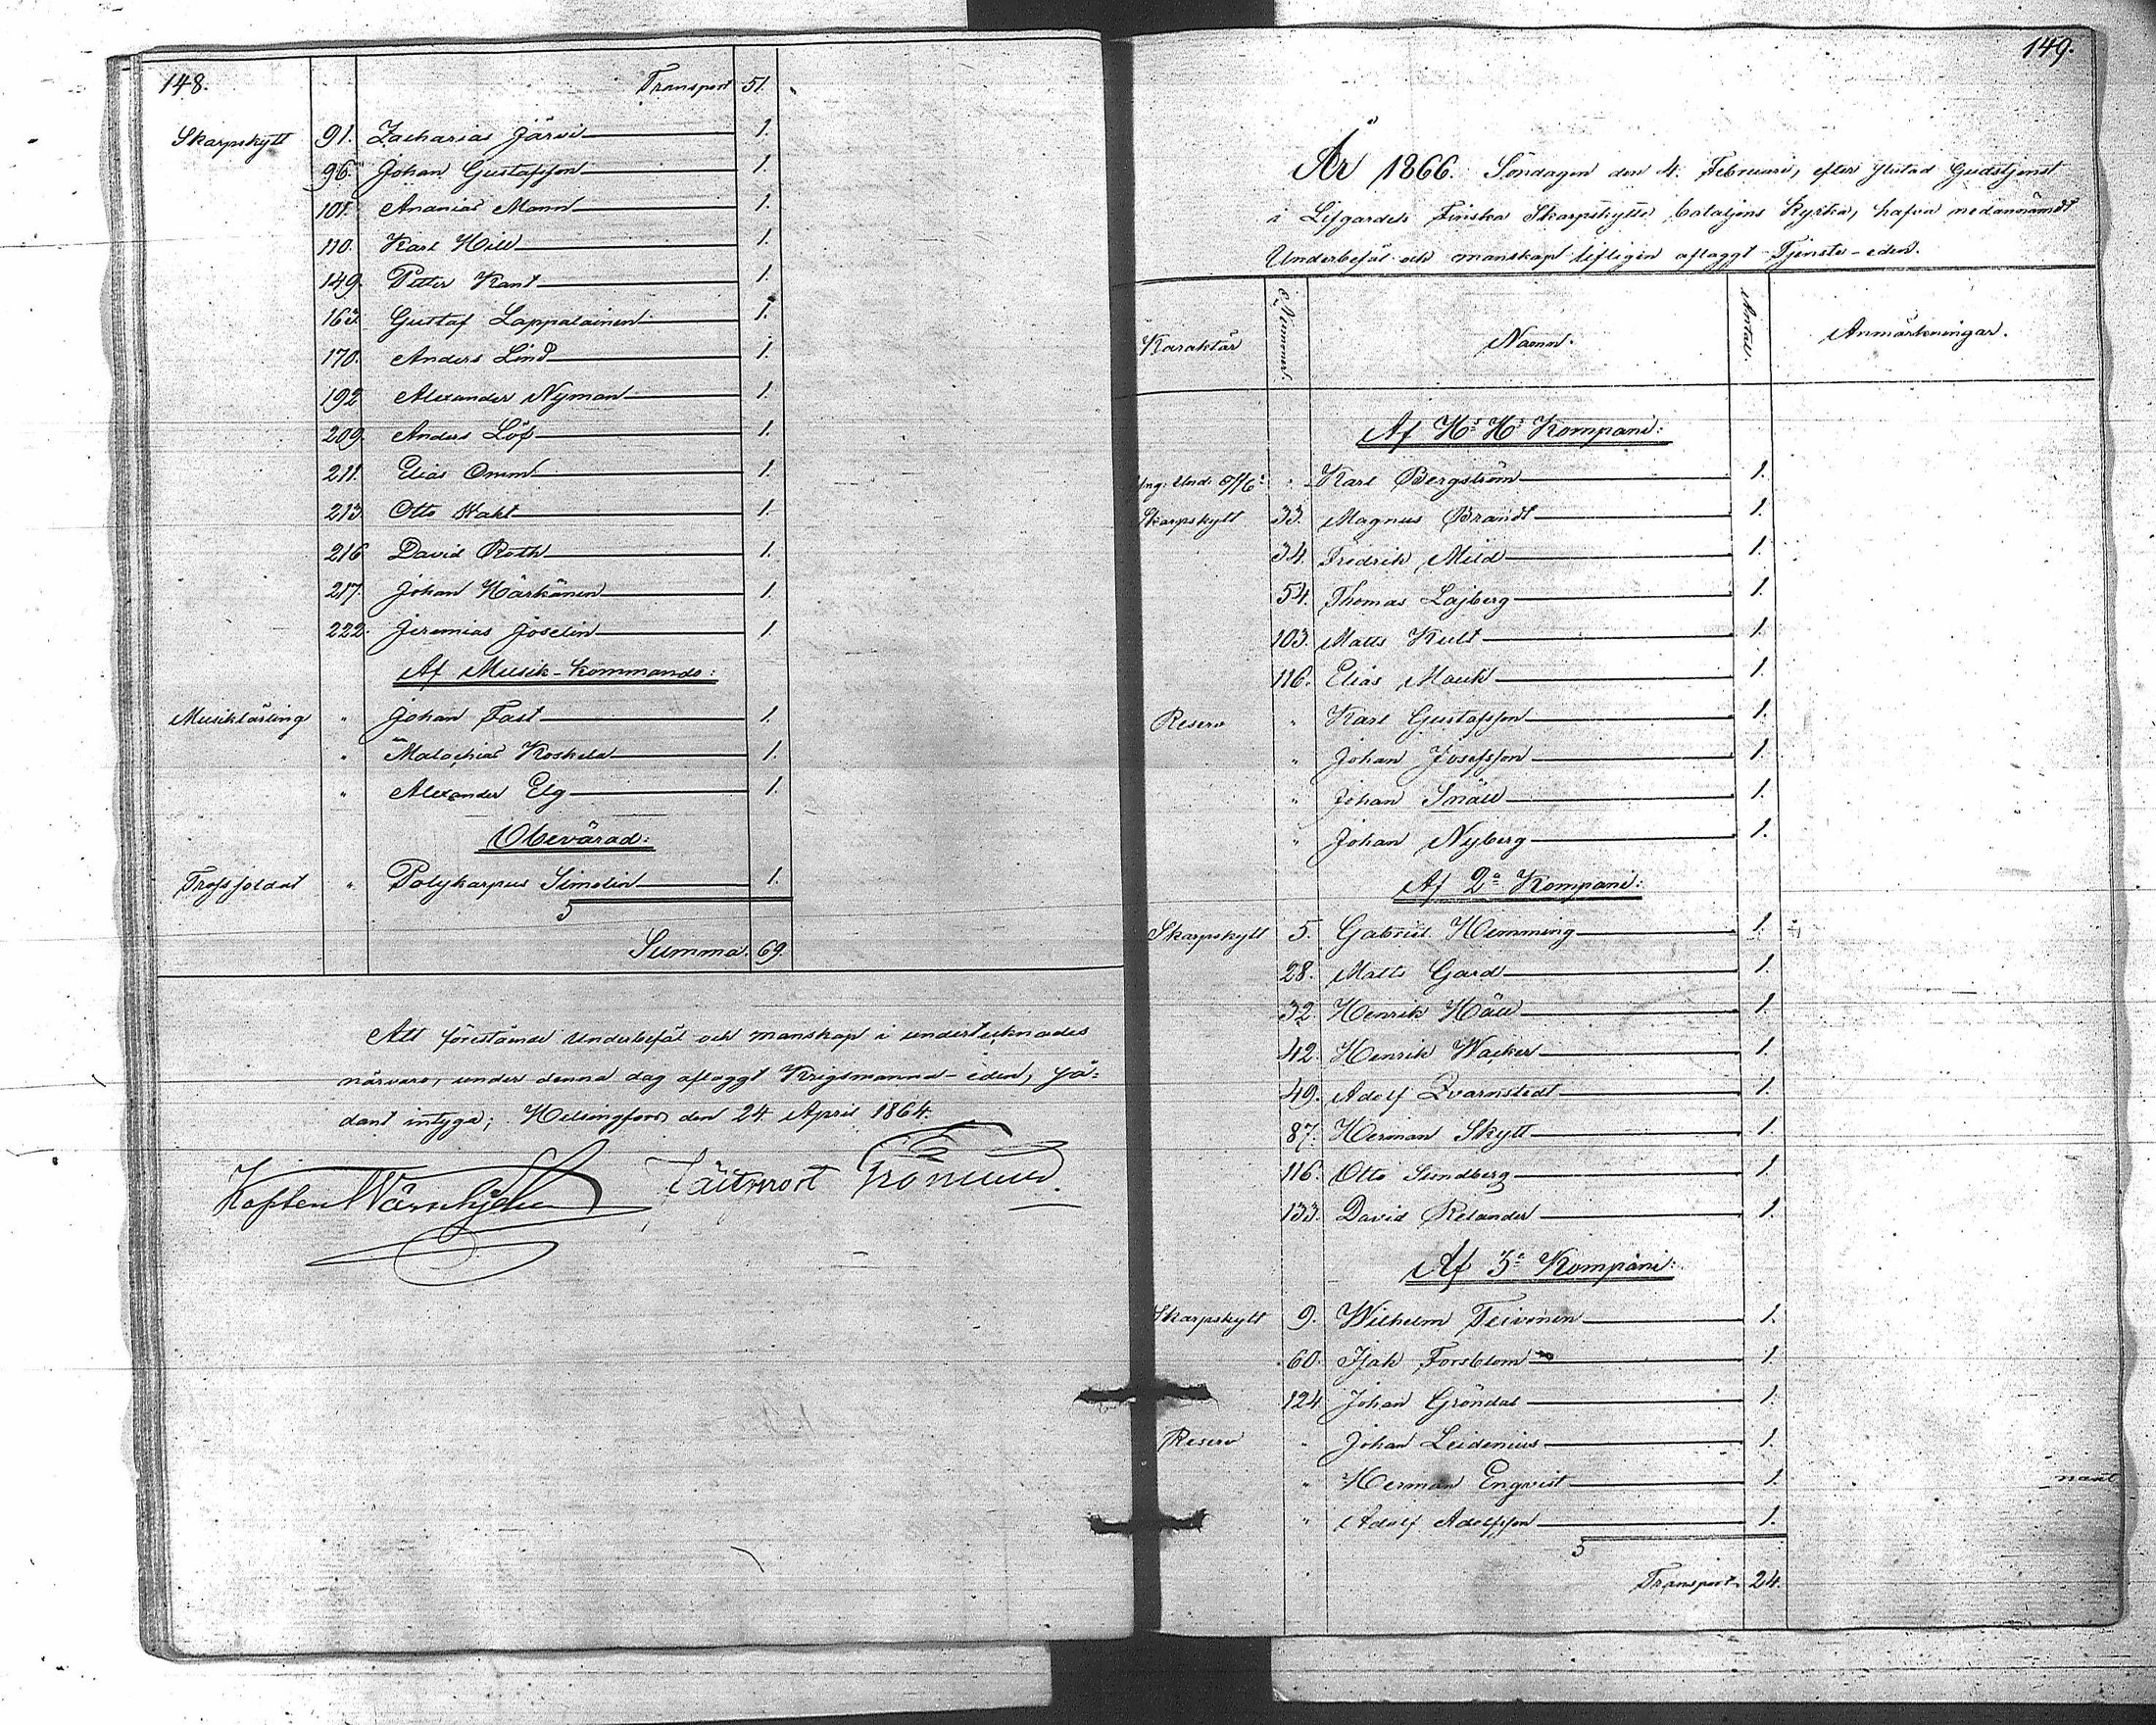 148.
Transport 51.
Skarpskytt 91. Zacharias Järvi 1.
96. Johan Gustafsson 1.
101. Ananias Mann 1.
110. Karl Hill 1.
149. Petter Kant 1.
163. Gustaf Lappalainen 1.
170. Anders Lind 1.
192 Alexander Nyman 1.
209. Anders Löf 1.
211. Elias Orm 1.
213. Otto Wakt 1.
216 David Roth 1.
217. Johan Härkänen 1.
222. Jeremias Joselin 1.
Af Musik-kommando:
Musiklärling " Johan Fast 1.
" Malachias Koskela 1.
" Alexander Elg 1.
Obevärad:
Trossoldat " Polykarpus Simelin 1.
5
Summa. 69.
Att förestående underbefäl och manskap i undertecknades
närvaro, under denna dag aflaggt Krigsmanna-eden, så-
dant intyga; Helsingfors den 24 April 1864.
Kapten
149.
År 1866. Söndagen den 4. Februari, efter slutad Gudstjenst
i Lifgardets Finska Skarpskytte bataljons Kyrka, hafva nedannämdt
Underbefäl och manskap lifligen aflaggt Tjenste-eden.
Karaktär Nummer. Namn. Antal. Anmärkningar.
Af H: H: Kompani:
Und: Karl Bergström 1.
Skarpskytt 33. Magnus Brandt 1.
34. Fredrik Mild 1.
54. Thomas Lajberg 1.
103. Matts Kult 1.
116. Elias Mauk 1.
Reserv " Karl Gustafsson 1.
" Johan Josefsson 1.
" Johan Snäll 1.
" Johan Nyberg 1.
Af 2a Kompani:
Skarpskytt 5. Gabriel Hemming 1.
28. Matts Gard 1.
32. Henrik Häll 1.
42. Henrik Wacker 1.
49. Adolf Qvarnstedt 1.
87. Herman Skytt 1.
116. Otto Sundberg 1.
133. David Relander 1.
Af 3e Kompani:
Skarpskytt 9. Wilhelm Teivonen 1.
60. Isak Forsblom 1.
124. Johan Gröndal 1.
Reserv " Johan Leidenius 1.
" Herman Enqvist 1.
" Adolf Adolfsson 1.
5
Transport. 24.